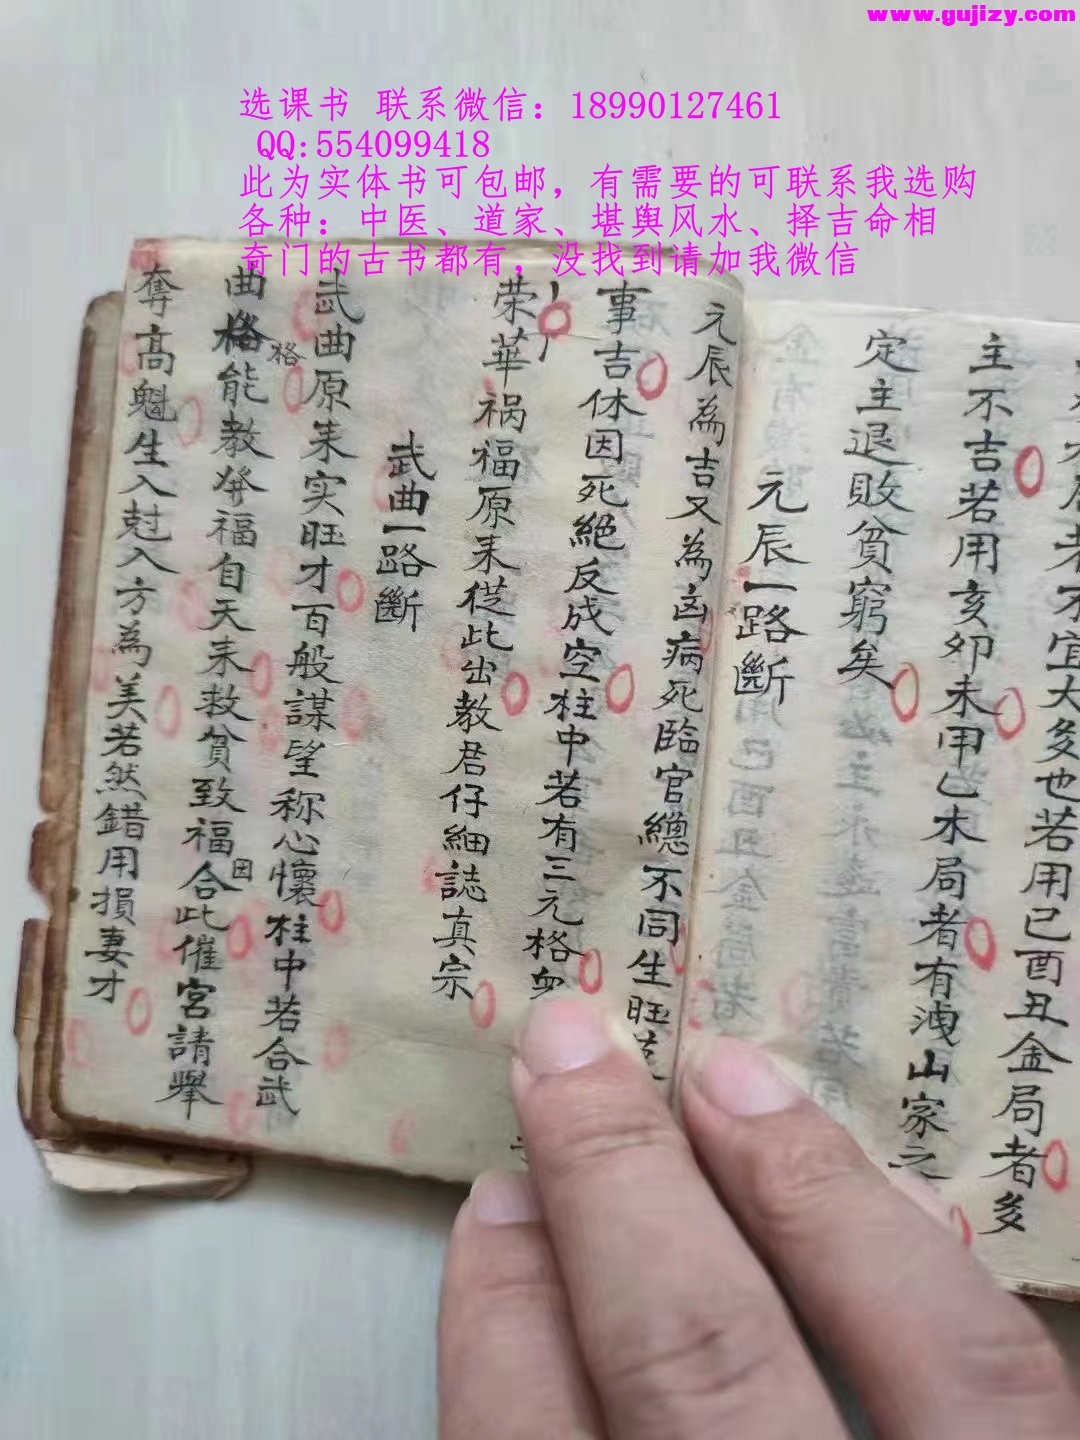 www.gujizy.com
选课书 联系微信：18990127461
QQ:554099418
此为实体书可包邮，有需要的可联系我选购
各种：中医、道家、堪舆风水、择吉命相
奇门的古书都有，没找到请加我微信
局者不宜大多也若用巳酉丑金局者多
主不吉若用亥卯未甲乙木局者有洩山家之
定主退敗貧窮矣
元辰一路斷
元辰為吉又為凶病死臨官總不同生旺
事吉休因死絕反成空柱中若有三元格
荣華祸福原来從此出教君仔細誌真宗
武曲一路斷
武曲原来实旺才百般謀望称心懷柱中若合武
曲格能教發福自天来救貧致福合此催宮請舉
格
因
奪高魁生入尅入方為美若然錯用損妻才